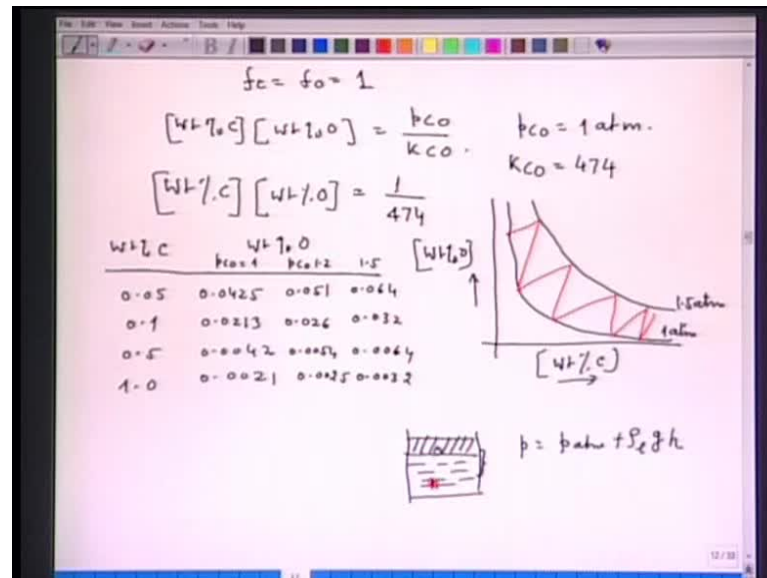 File Edit View Insert Actions Tools Help
fc = fo = 1
[wt%C][wt%O] = pco / Kco.
pco = 1 atm.
Kco = 474
[wt%C][wt%O] = 1 / 474
wt% C wt% O
pco=1 pco 1.2 1.5
0.05 0.0425 0.051 0.064
0.1 0.0213 0.026 0.032
0.5 0.0042 0.0054 0.0064
1.0 0.0021 0.0025 0.0032
[wt%O]
1.5atm
1atm
[wt%C]
p = patm + ρl g h
12/33